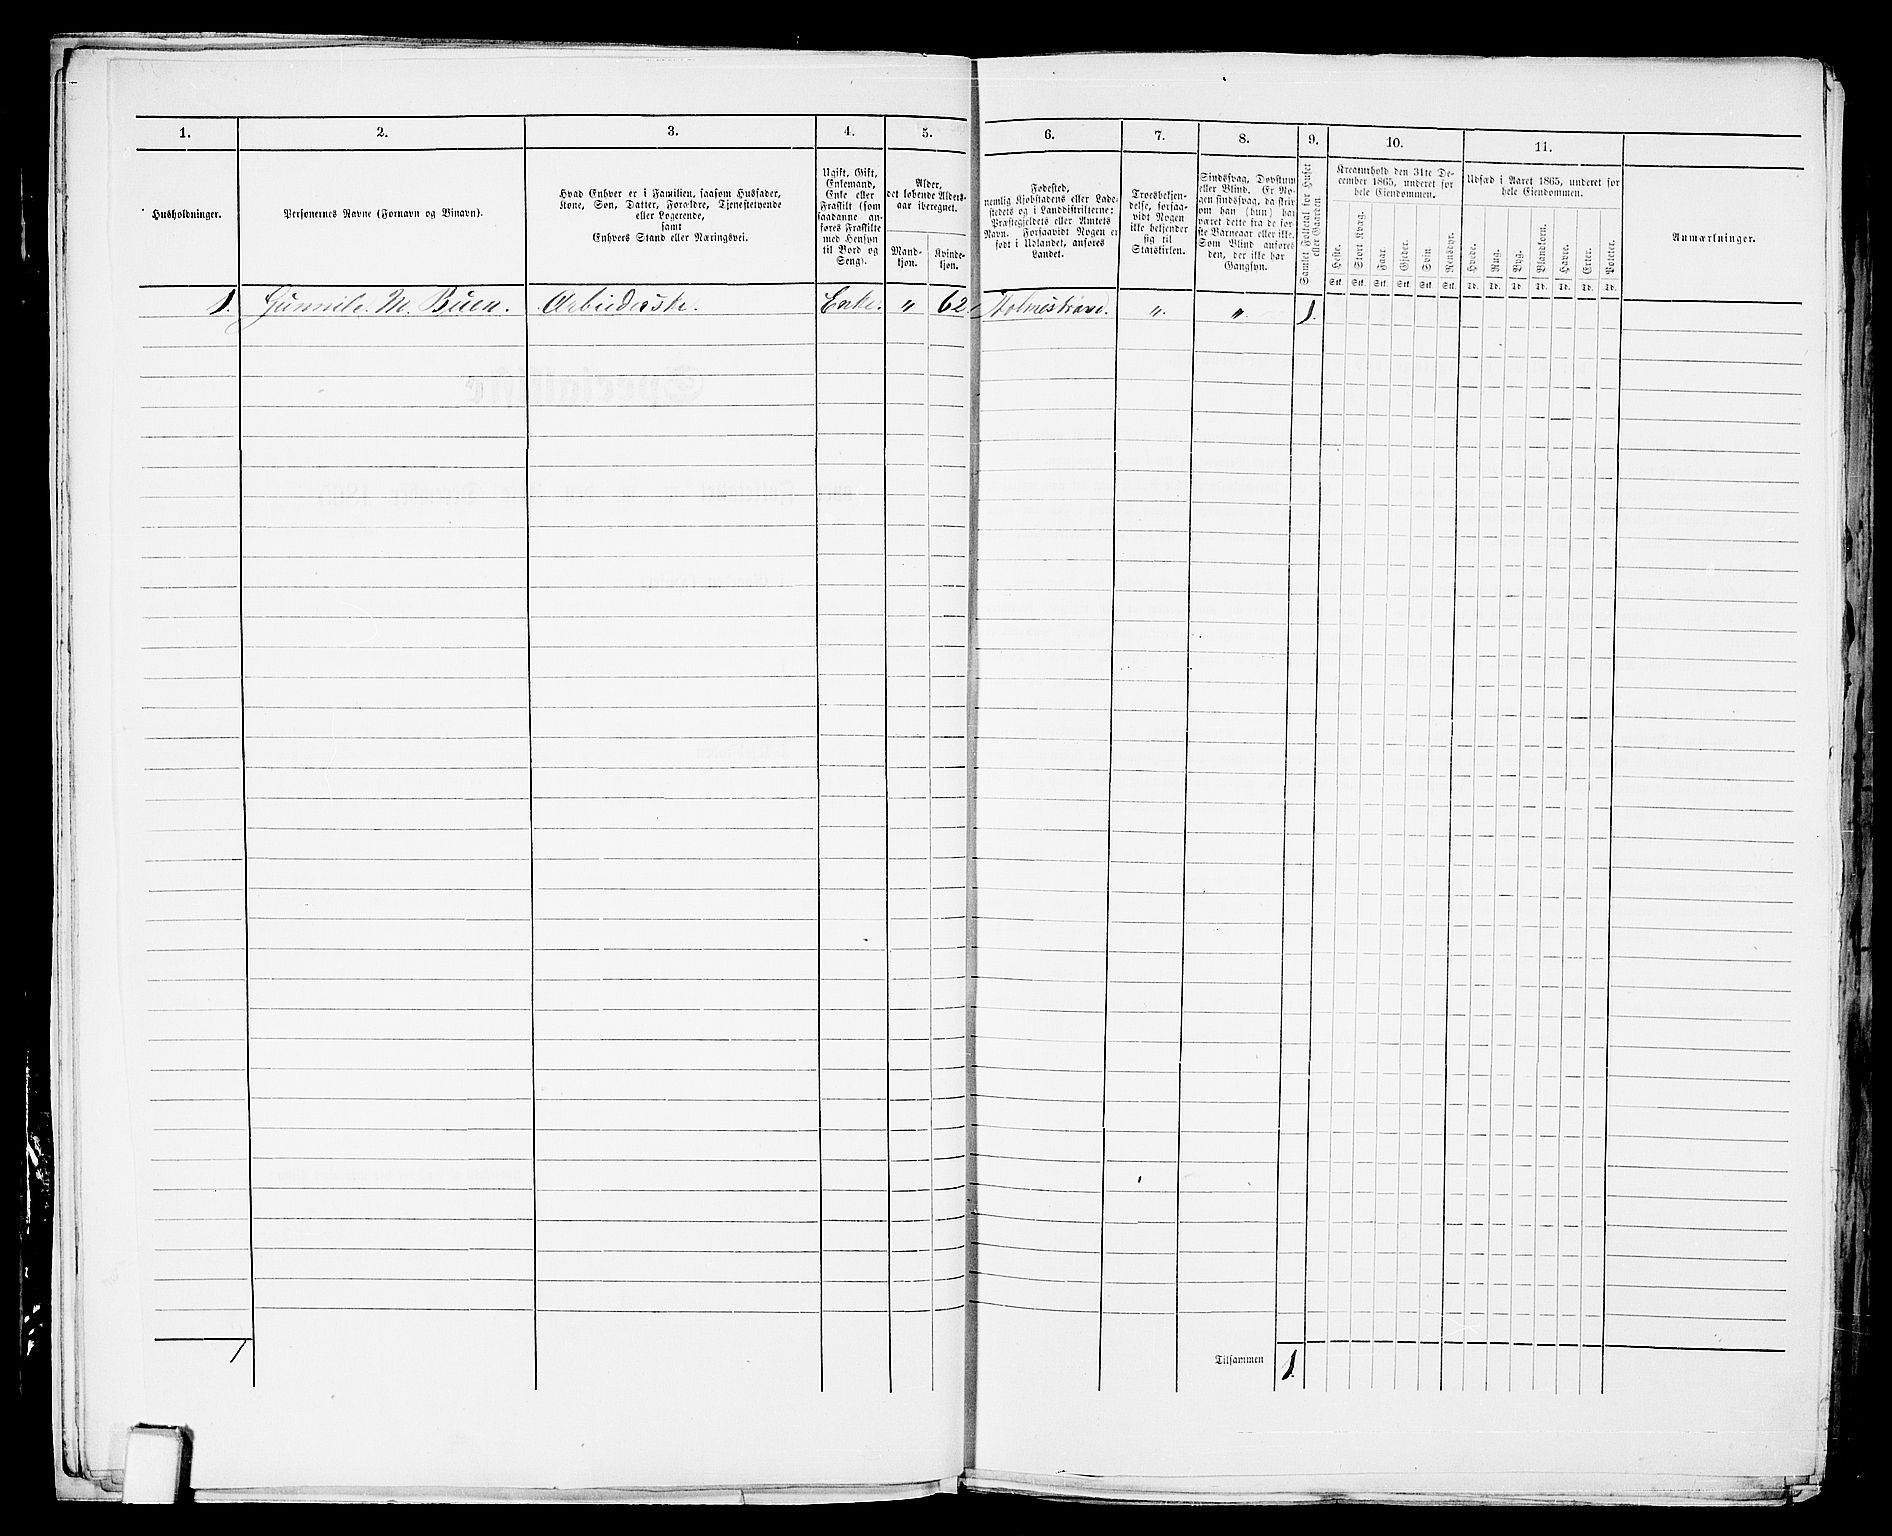 1. 2. 3. 4. 5. 6. 7. 8. 9. 10. 11.
Husholdninger.
Personernes Navne (Fornavn og Binavn).
Hvad Enhver er i Familien, saasom Husfader,
Kone, Søn, Datter, Forældre, Tjenestetyende
eller Logerende,
samt
Enhvers Stand eller Næringsvei.
Ugift, Gift,
Enkemand,
Enke eller
Fraskilt (som
saadanne an-
føres Fraskilte
med Hensyn
til Bord og
Seng).
Alder,
det løbende Alders-
aar iberegnet.
Mand-
kjøn.
Kvinde-
kjøn.
Fødested,
nemlig Kjøbstadens eller Lade-
stedets og i Landdistrikterne:
Præstegjeldets eller Amtets
Navn. Forsaavidt Nogen er
født i Udlandet, anføres
Landet.
Troesbekjen-
delse, forsaa-
vidt Nogen
ikke bekjender
sig til
Statskirken.
Sindssvag, Døvstum
eller Blind. Er No-
gen sindssvag, da skriv
om han (hun) har
været dette fra de før-
ste Barneaar eller ikke.
Som Blind anføres
den, der ikke har
Gangsyn.
Samlet Folketal for Huset
eller Gaarden.
Kreaturhold den 31te De-
cember 1865, underet for
hele Eiendommen.
Heste.
Stort Kvæg.
Faar.
Gjeder.
Svin.
Rensdyr.
Udsæd i Aaret 1865, underet for
hele Eiendommen.
Hvede.
Rug.
Byg.
Blandkorn.
Havre.
Erter.
Poteter.
Stk. Stk. Stk. Stk. Stk. Stk. Td. Td. Td. Td. Td. Td. Td.
Anmærkninger.
1. Gunnile. M. Buen. Arbeiderske. Enke. " 62. Holmestrand. ". ". 1.
1
Tilsammen 1.